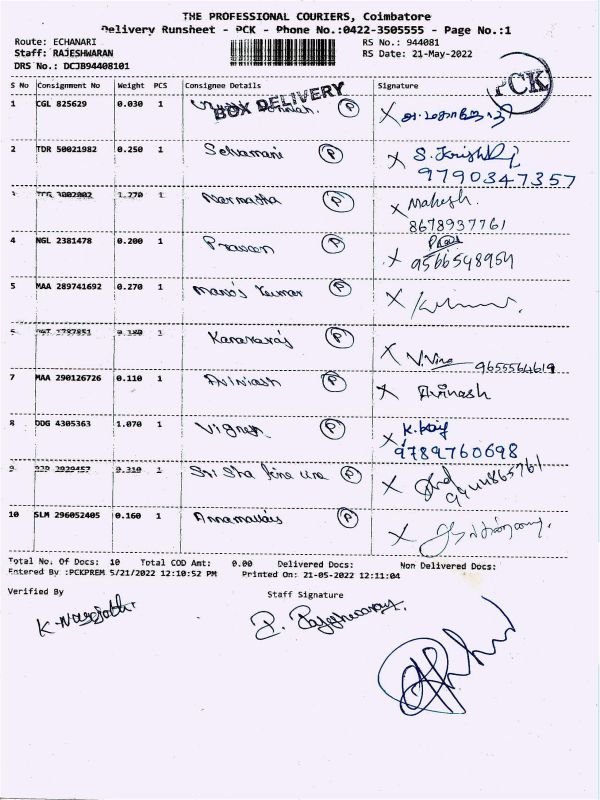 THE PROFESSIONAL COURIERS, Coimbatore
Delivery Runsheet - PCK - Phone No.:0422-3505555 - Page No.:1
Route: ECHANARI RS No.: 944081
Staff: RAJESHWARAN RS Date: 21-May-2022
DRS No.: DCJB94408101
PCK
S No Consignment No Weight PCS Consignee Details Signature
BOX DELIVERY
1 CGL 825629 0.030 1 P X
2 TDR 50021982 0.250 1 Selvamani P X S.
9790347357
3 1.270 1 Narmatha P X Mahesh.
8678937761
4 NGL 2381478 0.200 1 Praveen P X
9566548954
5 MAA 289741692 0.270 1 Manoj Kumar P X
6 3787851 0.380 1 Kanakaraj P X V. 9655564619
7 MAA 290126726 0.110 1 Avinash P X Avinash
8 DDG 4305363 1.070 1 Vignesh P X K.
9789760698
9 2929457 0.310 1 Sri Sha P X
10 SLM 296052405 0.160 1 Annamalais P X
Total No. Of Docs: 10 Total COD Amt: 0.00 Delivered Docs: Non Delivered Docs:
Entered By :PCKPREM 5/21/2022 12:10:52 PM Printed On: 21-05-2022 12:11:04
Verified By Staff Signature
K. P. Rajeshwaran